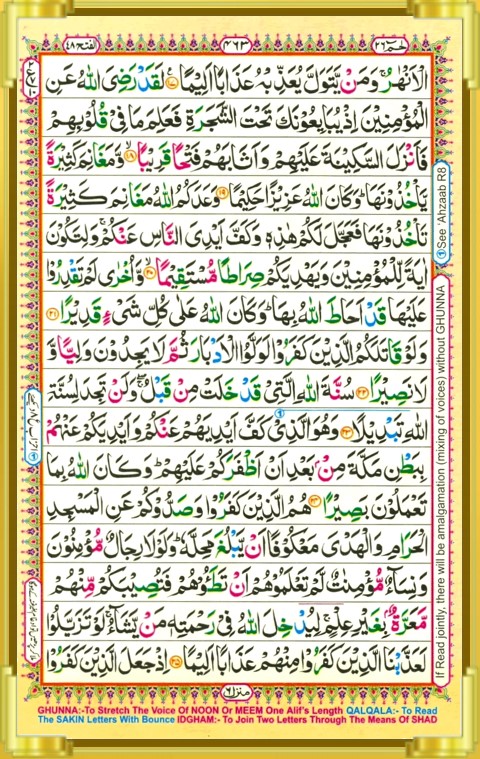 الفتح ٤٨
٤٦٣
حٰمٓ ٢٦
الْاَنْهٰرُ ۚ وَمَنْ يَّتَوَلَّ يُعَذِّبْهُ عَذَابًا اَلِيْمًا ﴿۱۷﴾ لَقَدْ رَضِيَ اللّٰهُ عَنِ
الْمُؤْمِنِيْنَ اِذْ يُبَايِعُوْنَكَ تَحْتَ الشَّجَرَةِ فَعَلِمَ مَا فِيْ قُلُوْبِهِمْ
فَاَنْزَلَ السَّكِيْنَةَ عَلَيْهِمْ وَاَثَابَهُمْ فَتْحًا قَرِيْبًا ﴿۱۸﴾ وَّمَغَانِمَ كَثِيْرَةً
يَّاْخُذُوْنَهَا ؕ وَكَانَ اللّٰهُ عَزِيْزًا حَكِيْمًا ﴿۱۹﴾ وَعَدَكُمُ اللّٰهُ مَغَانِمَ كَثِيْرَةً
تَاْخُذُوْنَهَا فَعَجَّلَ لَكُمْ هٰذِهٖ وَكَفَّ اَيْدِيَ النَّاسِ عَنْكُمْ ۚ وَلِتَكُوْنَ
اٰيَةً لِّلْمُؤْمِنِيْنَ وَيَهْدِيَكُمْ صِرَاطًا مُّسْتَقِيْمًا ﴿۲۰﴾ وَّاُخْرٰى لَمْ تَقْدِرُوْا
عَلَيْهَا قَدْ اَحَاطَ اللّٰهُ بِهَا ؕ وَكَانَ اللّٰهُ عَلٰى كُلِّ شَيْءٍ قَدِيْرًا ﴿۲۱﴾
وَلَوْ قَاتَلَكُمُ الَّذِيْنَ كَفَرُوْا لَوَلَّوُا الْاَدْبَارَ ثُمَّ لَا يَجِدُوْنَ وَلِيًّا وَّ
لَا نَصِيْرًا ﴿۲۲﴾ سُنَّةَ اللّٰهِ الَّتِيْ قَدْ خَلَتْ مِنْ قَبْلُ ۖۚ وَلَنْ تَجِدَ لِسُنَّةِ
اللّٰهِ تَبْدِيْلًا ﴿۲۳﴾ وَهُوَ الَّذِيْ كَفَّ اَيْدِيَهُمْ عَنْكُمْ وَاَيْدِيَكُمْ عَنْهُمْ
بِبَطْنِ مَكَّةَ مِنْۢ بَعْدِ اَنْ اَظْفَرَكُمْ عَلَيْهِمْ ؕ وَكَانَ اللّٰهُ بِمَا
تَعْمَلُوْنَ بَصِيْرًا ﴿۲۴﴾ هُمُ الَّذِيْنَ كَفَرُوْا وَصَدُّوْكُمْ عَنِ الْمَسْجِدِ
الْحَرَامِ وَالْهَدْيَ مَعْكُوْفًا اَنْ يَّبْلُغَ مَحِلَّهٗ ؕ وَلَوْلَا رِجَالٌ مُّؤْمِنُوْنَ
وَنِسَآءٌ مُّؤْمِنٰتٌ لَّمْ تَعْلَمُوْهُمْ اَنْ تَطَـُٔوْهُمْ فَتُصِيْبَكُمْ مِّنْهُمْ
مَّعَرَّةٌۢ بِغَيْرِ عِلْمٍ ۚ لِيُدْخِلَ اللّٰهُ فِيْ رَحْمَتِهٖ مَنْ يَّشَآءُ ۚ لَوْ تَزَيَّلُوْا
لَعَذَّبْنَا الَّذِيْنَ كَفَرُوْا مِنْهُمْ عَذَابًا اَلِيْمًا ﴿۲۵﴾ اِذْ جَعَلَ الَّذِيْنَ كَفَرُوْا
منزل ٦
See 'Ahzaab R8
If Read jointly, there will be amalgamation (mixing of voices) without GHUNNA
GHUNNA:-To Stretch The Voice Of NOON Or MEEM One Alif's Length QALQALA:- To Read
The SAKIN Letters With Bounce IDGHAM:- To Join Two Letters Through The Means Of SHAD